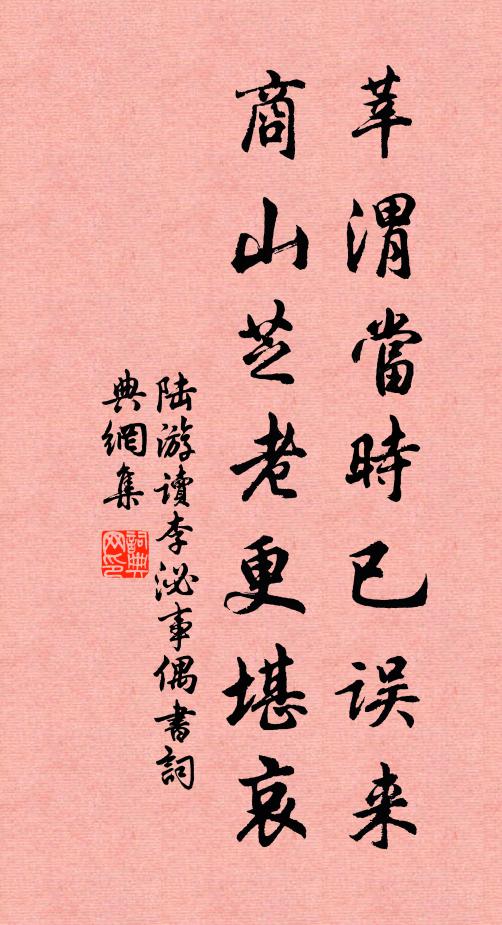 莘渭當時已误来
商山芝老更堪哀
陆游读李泌事偶書詞
典網集
詞典网印